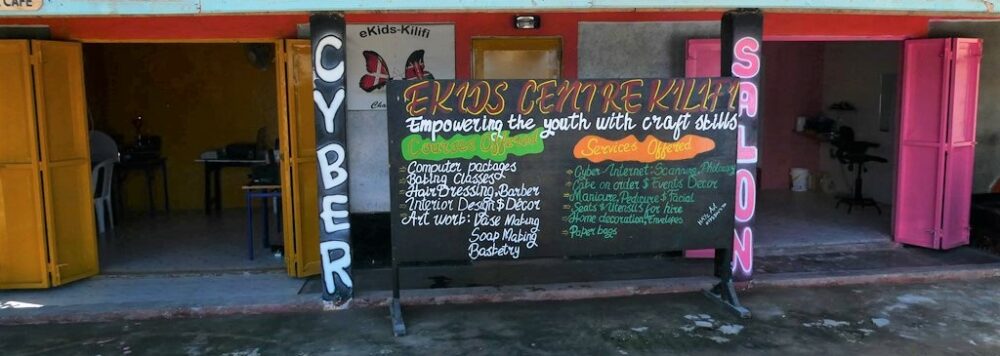 CAFE
eKids-Kilifi
Cha
CYBER
SALON
EKIDS CENTRE KILIFI
Empowering the youth with craft skills
Courses Offered
Computer packages
Baking Classes
HairDressing, Barber
Interior Design $ Décor
Art work: Vase Making
Soap Making
Basketry
Services Offered
Cyber Internet: Scanning, Photocopy
Cake on order $ Events Décor
Manicure, Pedicure $ Facial
Seats $ Utensils for hire
Home decoration, Envelopes
Paper bags